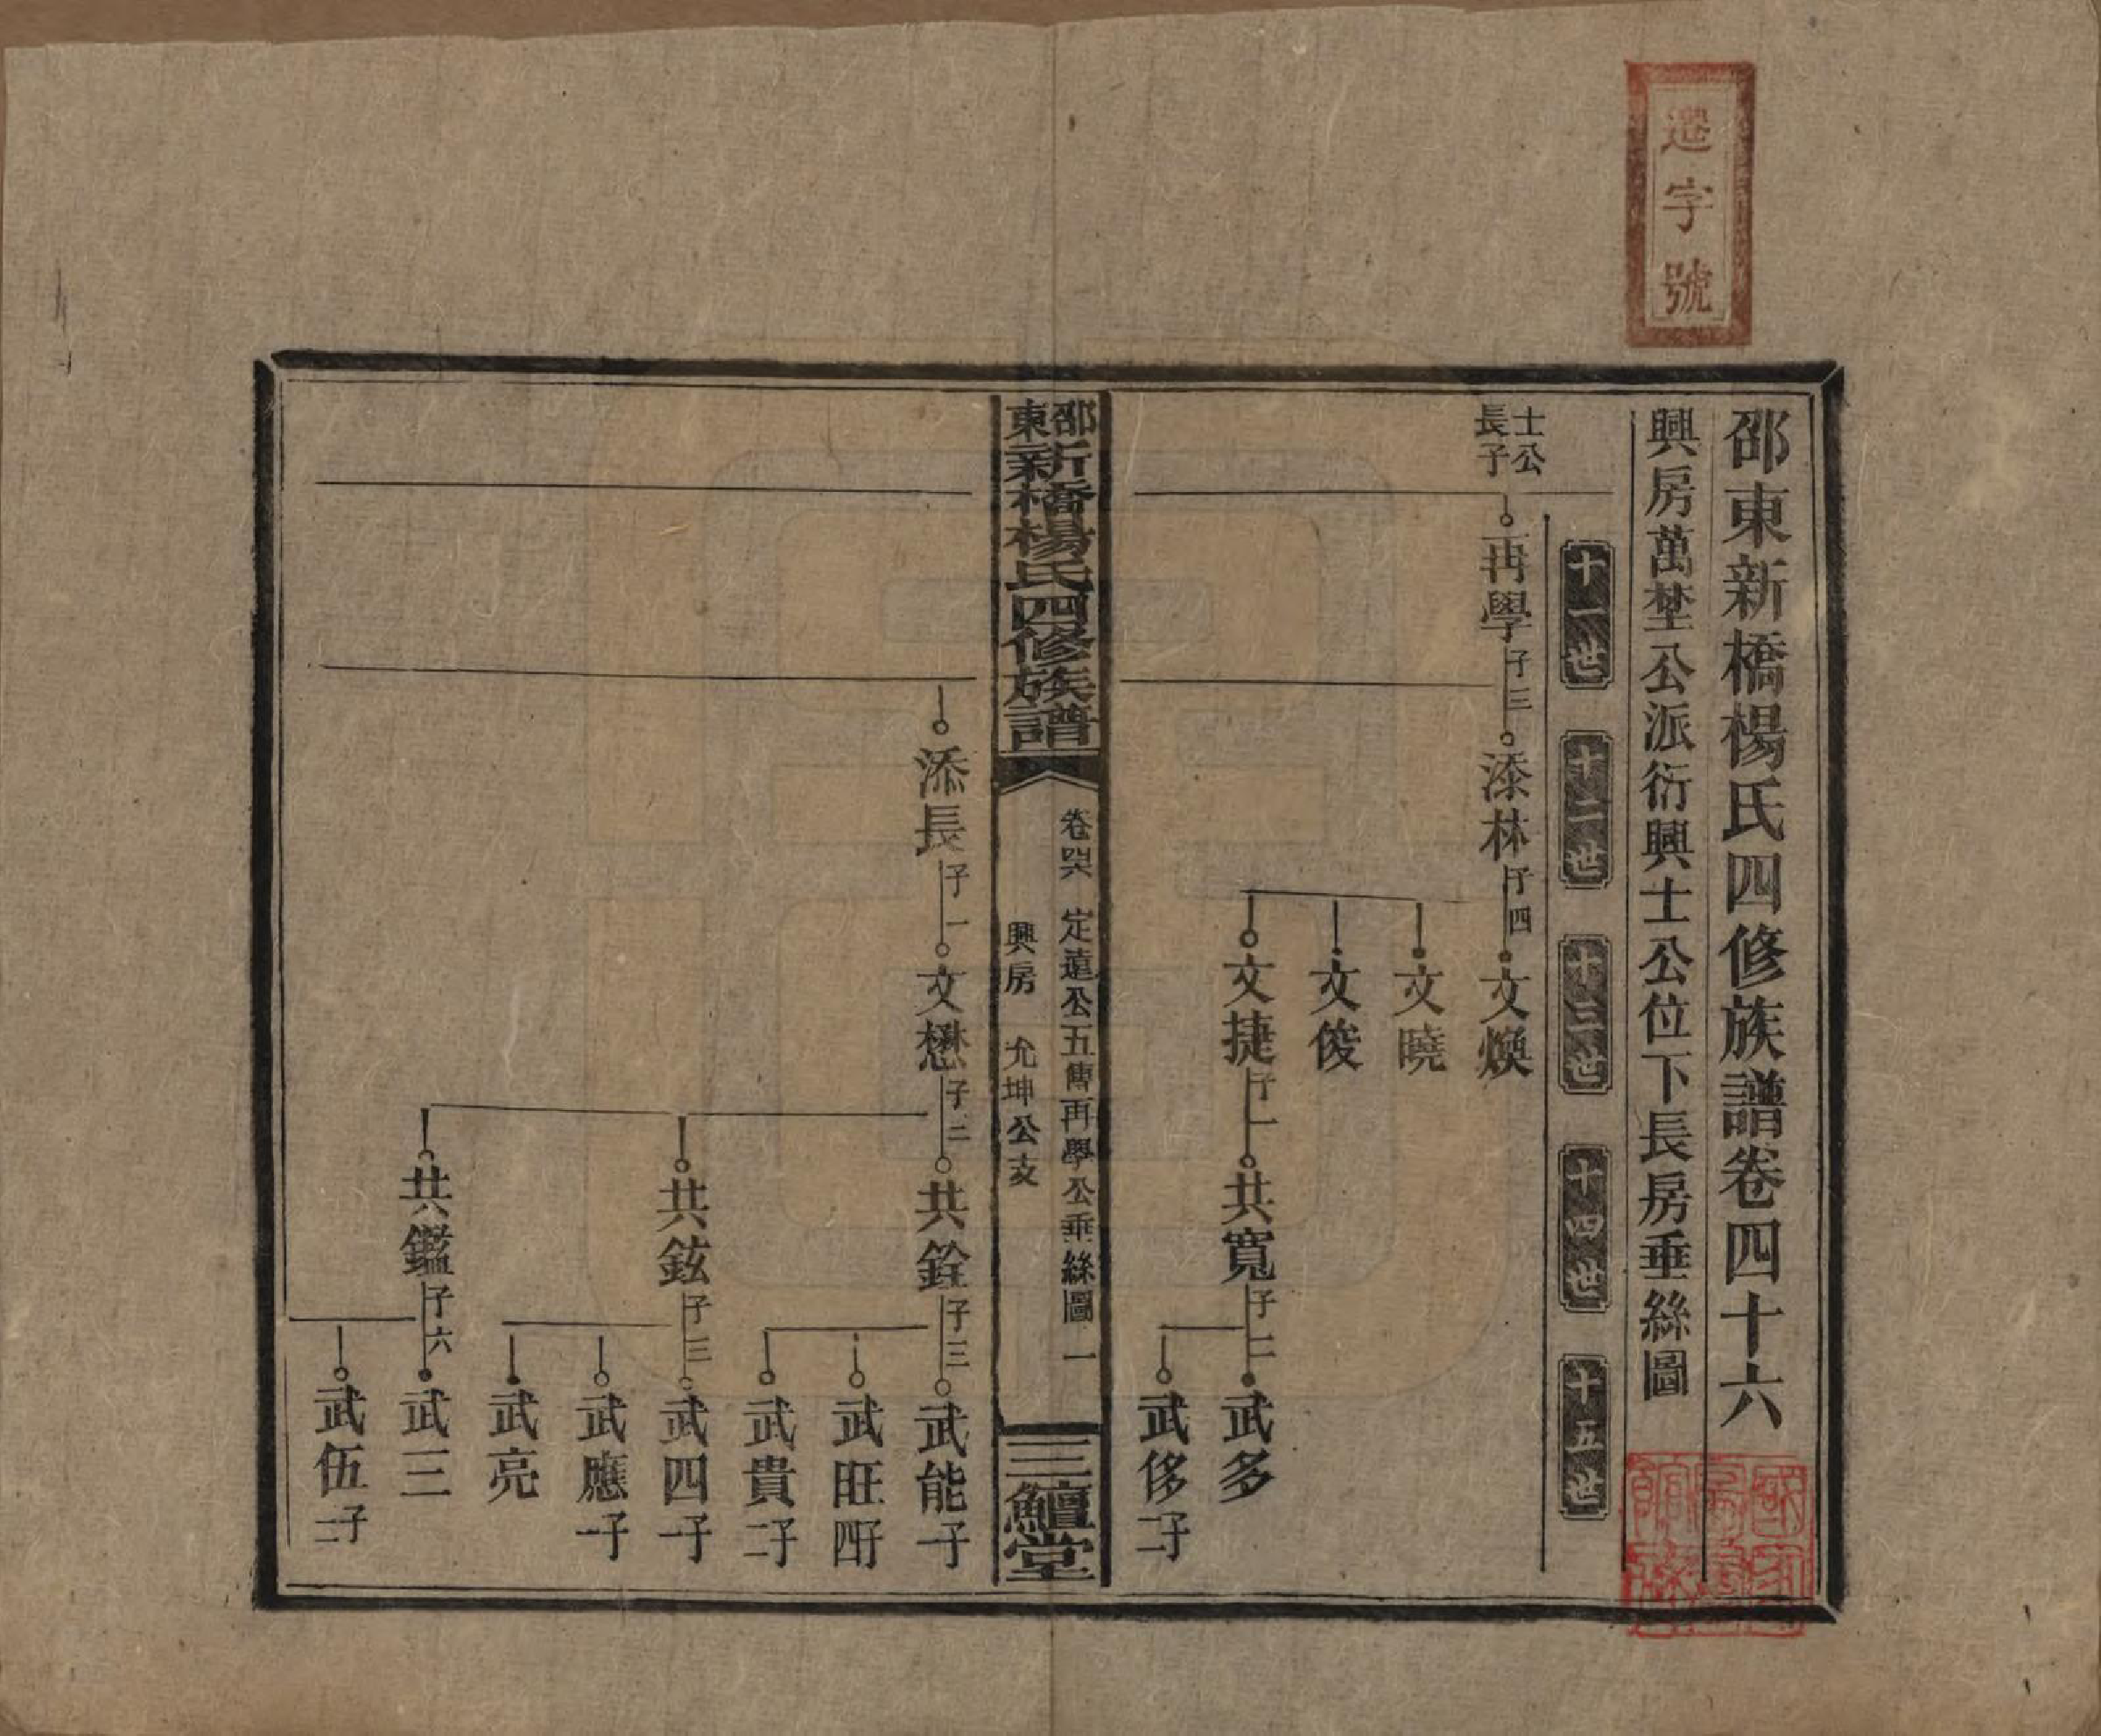 遐字號
邵東新橋楊氏四修族譜卷四十六
興房萬埜公派衍興士公位下長房垂絲圖
十一世
十二世
十三世
十四世
十五世
士公長子
再學 子三
添林 子四
文煥
文曉
文俊
文捷 子一
共寬 子二
武多
武侈 二子
邵東新橋楊氏四修族譜
卷四六 定遠公五傳再學公垂絲圖 一
興房 允坤公支
三鱣堂
添長 子一
文懋 子三
共銓 子三
武能 一子
武旺 四子
武貴 二子
共鉉 子三
武四 一子
武應 一子
武亮
共鑑 子六
武三
武伍 二子